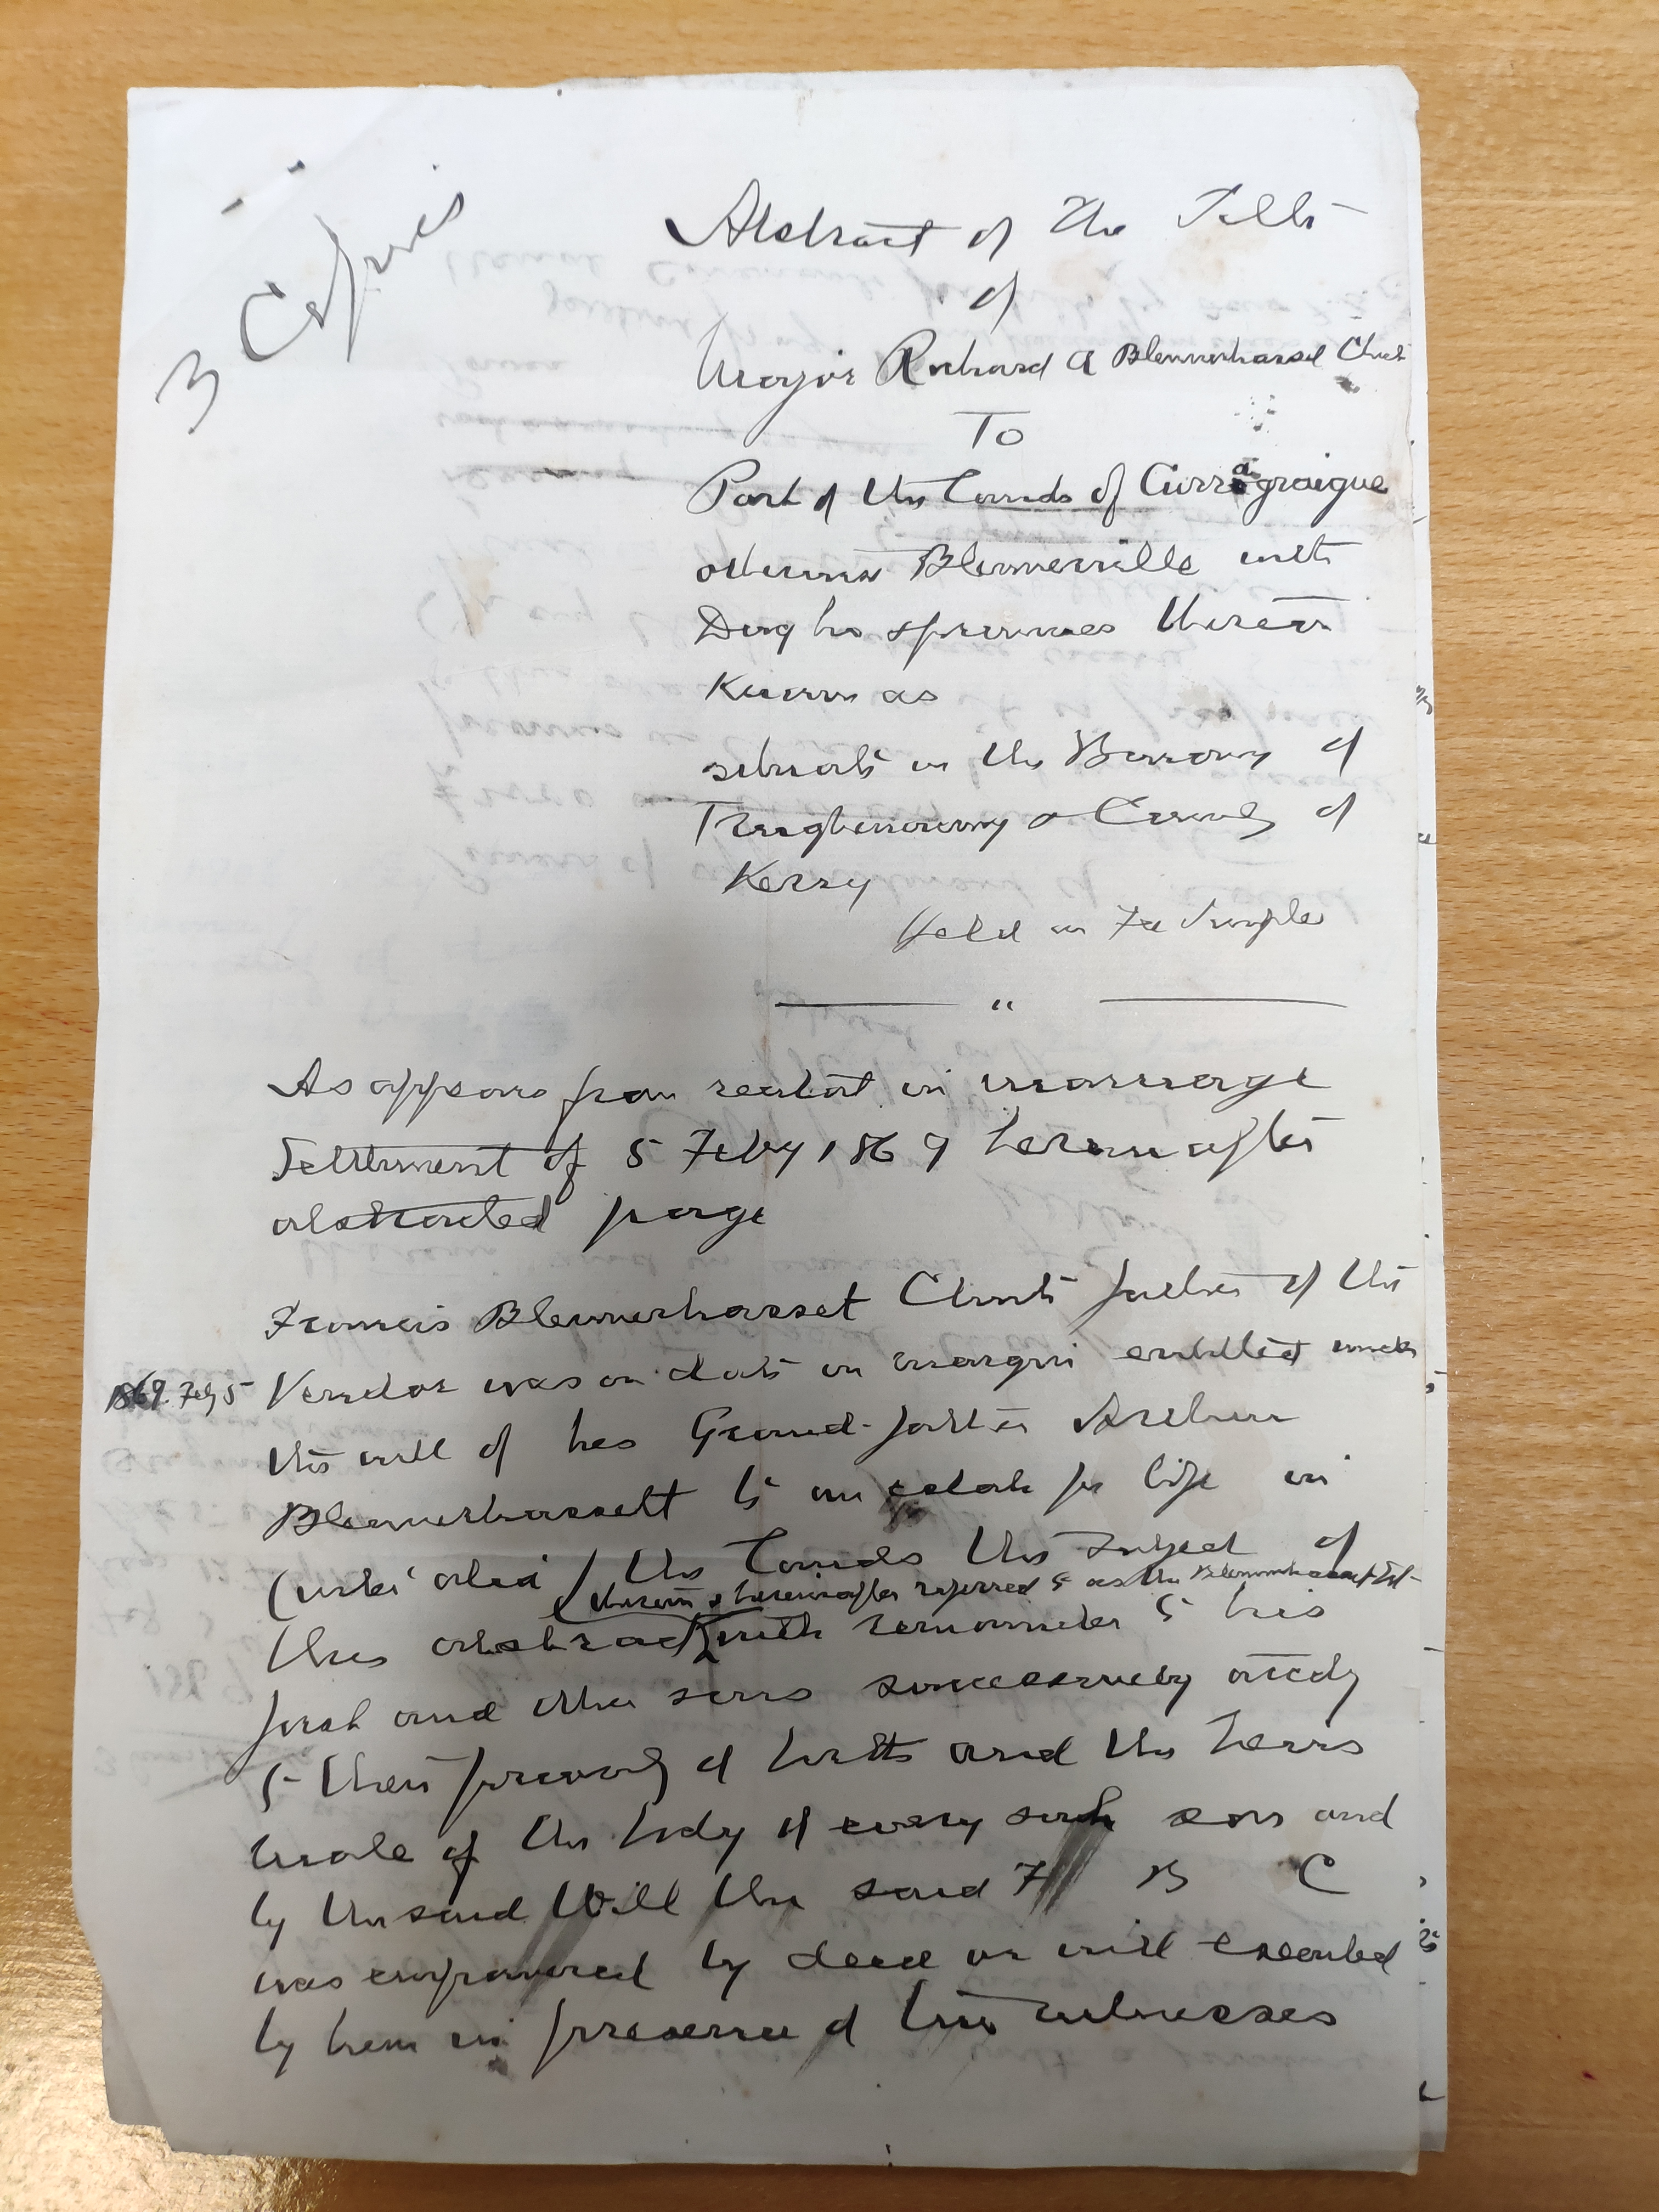 3 Copies
Abstract of the Title
of
Major Richard A Blennerhassel Chute
To
Part of the Lands of Curragraigue
otherwise Blennerville with
Dwg ho & premises thereon
Known as
situate in the Barrony of
Trughenacmy & County of
Kerry
Held in Fee Simple
"
As appears from recital in marriage
Settlement of 5 Feby 1869 hereinafter
abstracted page
Francis Blennerhasset Chute father of the
1869. Feby 5 Vendor was on date in margin entitled under
the will of his Grand-father Arthur
Blennerhassett to an estate for life in
(inter alia) the Lands the subject of
therein & hereinafter referred to as the Blennerhassett Est
this abstract with remainder to his
first and other sons successively accdg
to their priority of birth and the heirs
male of the body of every such son and
by the said Will the said F B C
was empowered by deed or will executed
by him in presence of two witnesses